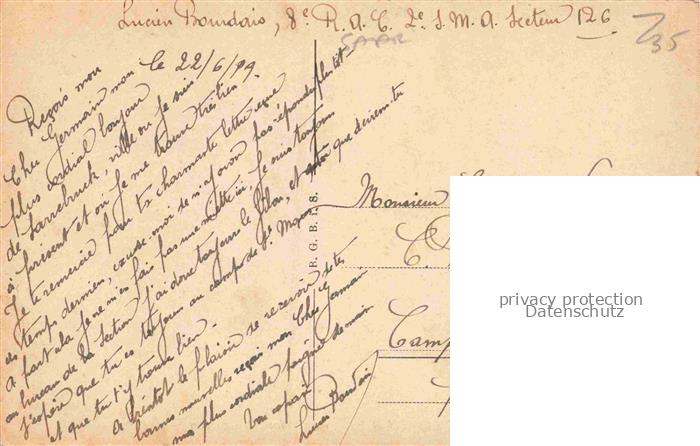 Lucien Bourdais, 8e R.A.C. 2e S.M.A. Secteur 126
SAAR
35
le 22/6/19.
Cher Germain
Reçois mon
plus cordial bonjour
de Sarrebruck, ville où je suis
à présent et où je me trouve très bien
Je te remercie pour ta charmante lettre reçue
ces temps dernier, excuse moi de n'y avoir pas répondu plutôt
A part cela je ne m'en fais pas une miette ici, je suis toujours
au bureau de la Section j'ai dore toujours le filon, et toi que deviens tu
J'espère que tu es toujours au camp de St
et que tu t'y trouve bien.
A bientôt le plaisir de recevoir de tes
bonnes nouvelles reçois mon Cher Germain
ma plus cordiale poignée de main
Ton copain
Lucien Bourdais
R. G. B. T. S.
Monsieur
C.
Camp
privacy protection
Datenschutz